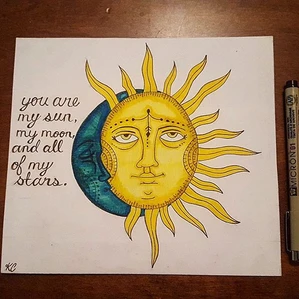 you are
my sun,
my moon,
and all
of my
stars.
KC
MICRON 01